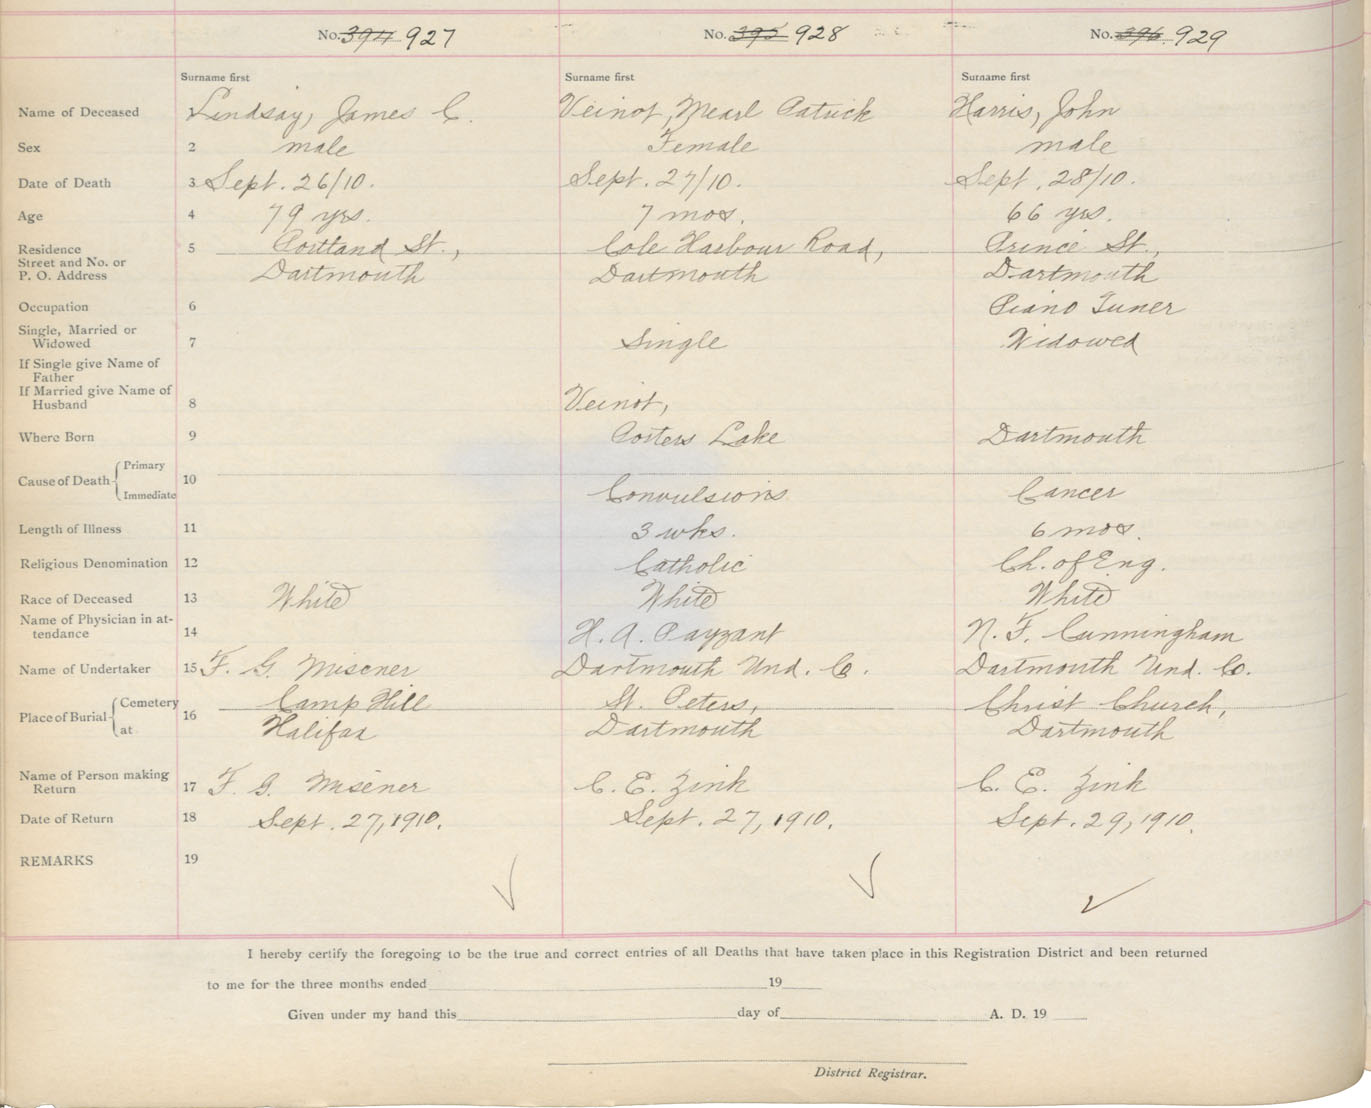 No. 394 927 No. 395 928 No. 396. 929
Surname first Surname first Surname first
Name of Deceased 1 Lindsay, James C. Veinot, Mearl Patrick Harris, John
Sex 2 male Female male
Date of Death 3 Sept. 26/10. Sept. 27/10. Sept. 28/10.
Age 4 79 yrs. 7 mos. 66 yrs.
Residence 5 Portland St., Cole Harbour Road, Prince St.,
Street and No. or
P. O. Address Dartmouth Dartmouth Dartmouth
Occupation 6 Piano Tuner
Single, Married or
Widowed 7 Single Widowed
If Single give Name of
Father
If Married give Name of
Husband 8 Veinot,
Where Born 9 Porters Lake Dartmouth
Cause of Death { Primary
Immediate 10 Convulsions Cancer
Length of Illness 11 3 wks. 6 mos.
Religious Denomination 12 Catholic Ch. of Eng.
Race of Deceased 13 White White White
Name of Physician in at-
tendance 14 H. A. Payzant N. F. Cunningham
Name of Undertaker 15 F. G. Misener Dartmouth Und. Co. Dartmouth Und. Co.
Place of Burial { Cemetery 16 Camp Hill St. Peters, Christ Church,
at Halifax Dartmouth Dartmouth
Name of Person making
Return 17 F. G. Misener C. E. Zink C. E. Zink
Date of Return 18 Sept. 27, 1910. Sept. 27, 1910. Sept. 29, 1910.
REMARKS 19
I hereby certify the foregoing to be the true and correct entries of all Deaths that have taken place in this Registration District and been returned
to me for the three months ended 19
Given under my hand this day of A. D. 19
District Registrar.